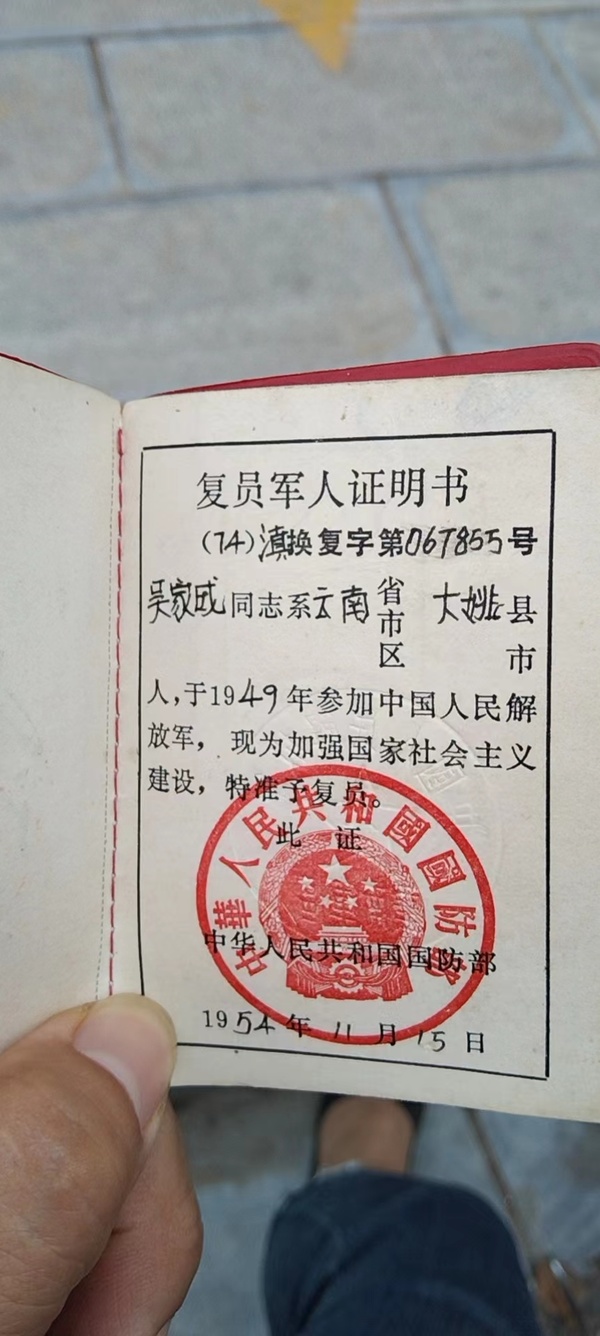 复员军人证明书
(74)滇换复字第067855号
吴家成同志系云南省市区 大姚县市
人,于1949年参加中国人民解
放军，现为加强国家社会主义
建设，特准予复员。
此 证
中华人民共和国国防部
1954年11月15日
中華人民共和國國防部